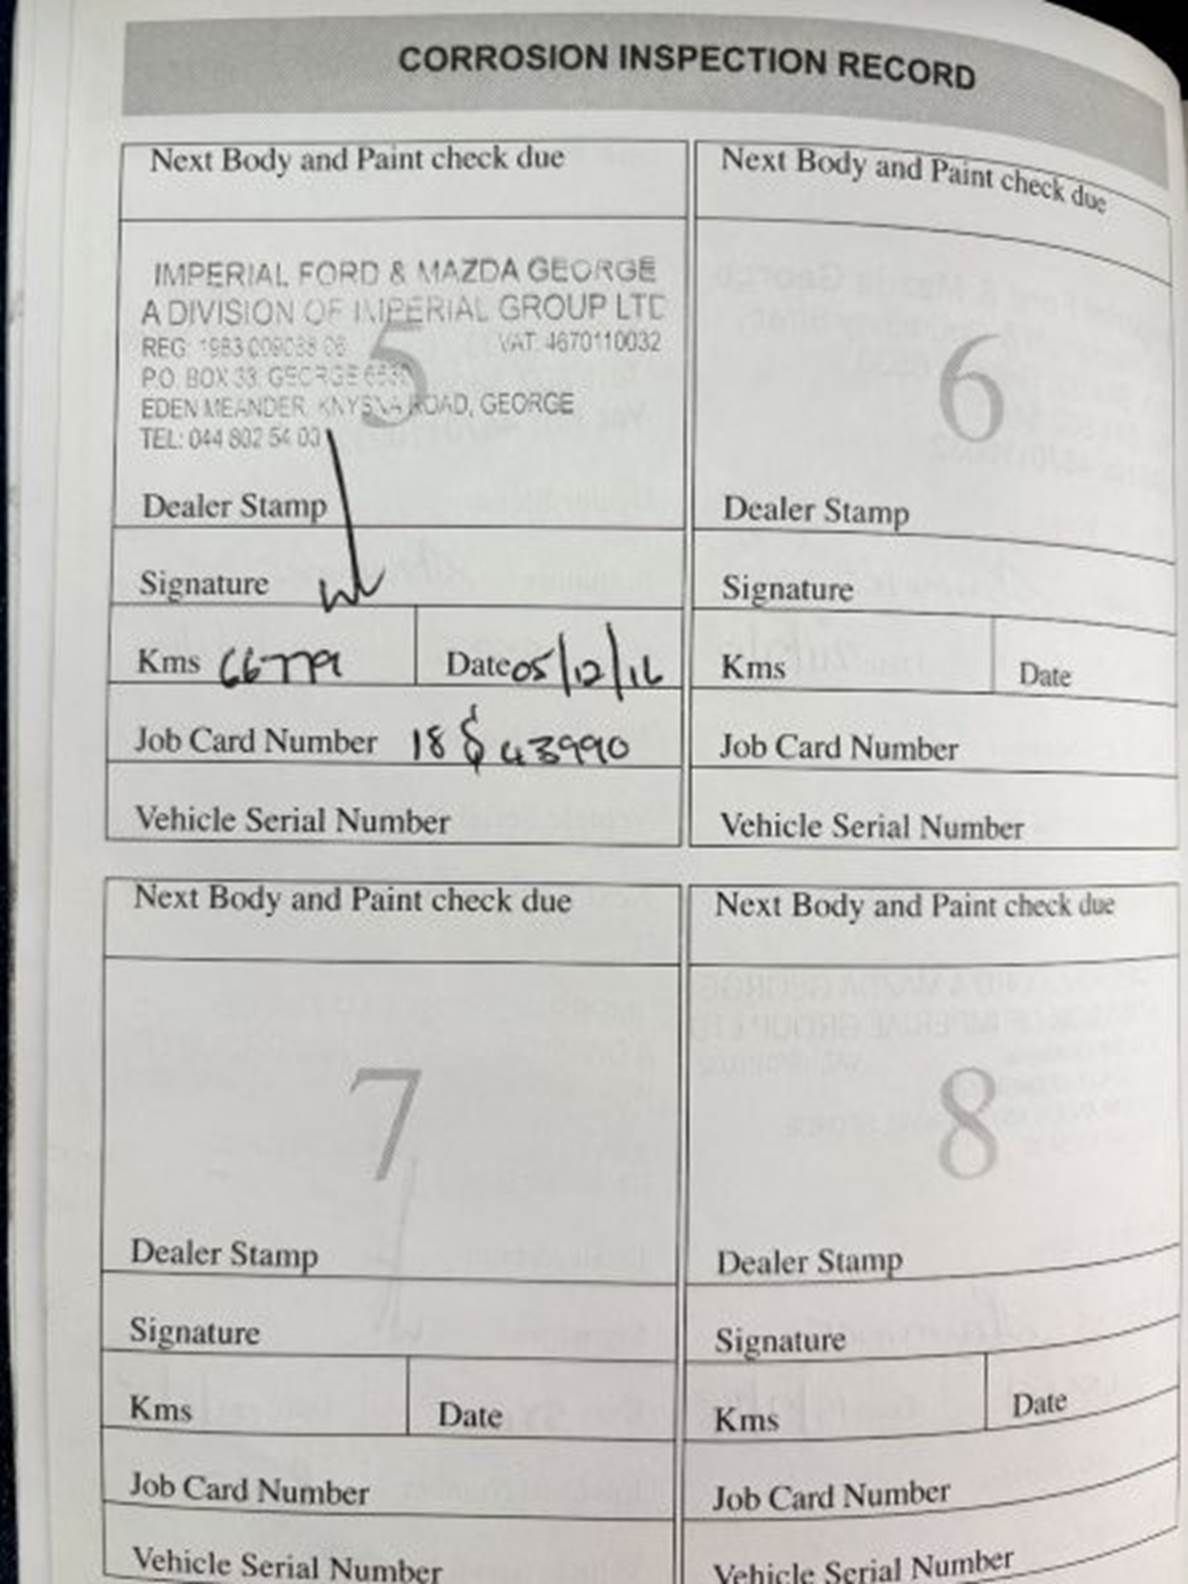 CORROSION INSPECTION RECORD
Next Body and Paint check due
IMPERIAL FORD & MAZDA GEORGE
A DIVISION OF IMPERIAL GROUP LTD
REG VAT: 4670110032
P.O. BOX 33 GEORGE
5
EDEN MEANDER, KNYSNA ROAD, GEORGE
TEL: 044 802 54 00
Dealer Stamp
Signature
Kms 66779 Date 05/12/16
Job Card Number 18 $ 43990
Vehicle Serial Number
Next Body and Paint check due
6
Dealer Stamp
Signature
Kms Date
Job Card Number
Vehicle Serial Number
Next Body and Paint check due
7
Dealer Stamp
Signature
Kms Date
Job Card Number
Vehicle Serial Number
Next Body and Paint check due
8
Dealer Stamp
Signature
Kms Date
Job Card Number
Vehicle Serial Number